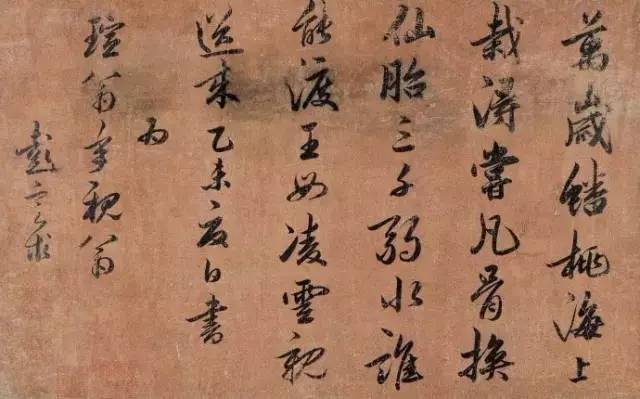 萬歲蟠桃海上
栽得嘗凡骨換
仙胎三千弱水誰
能渡王母凌雲親
送來乙未夏日書
为
瑄翁年親翁
彭定求